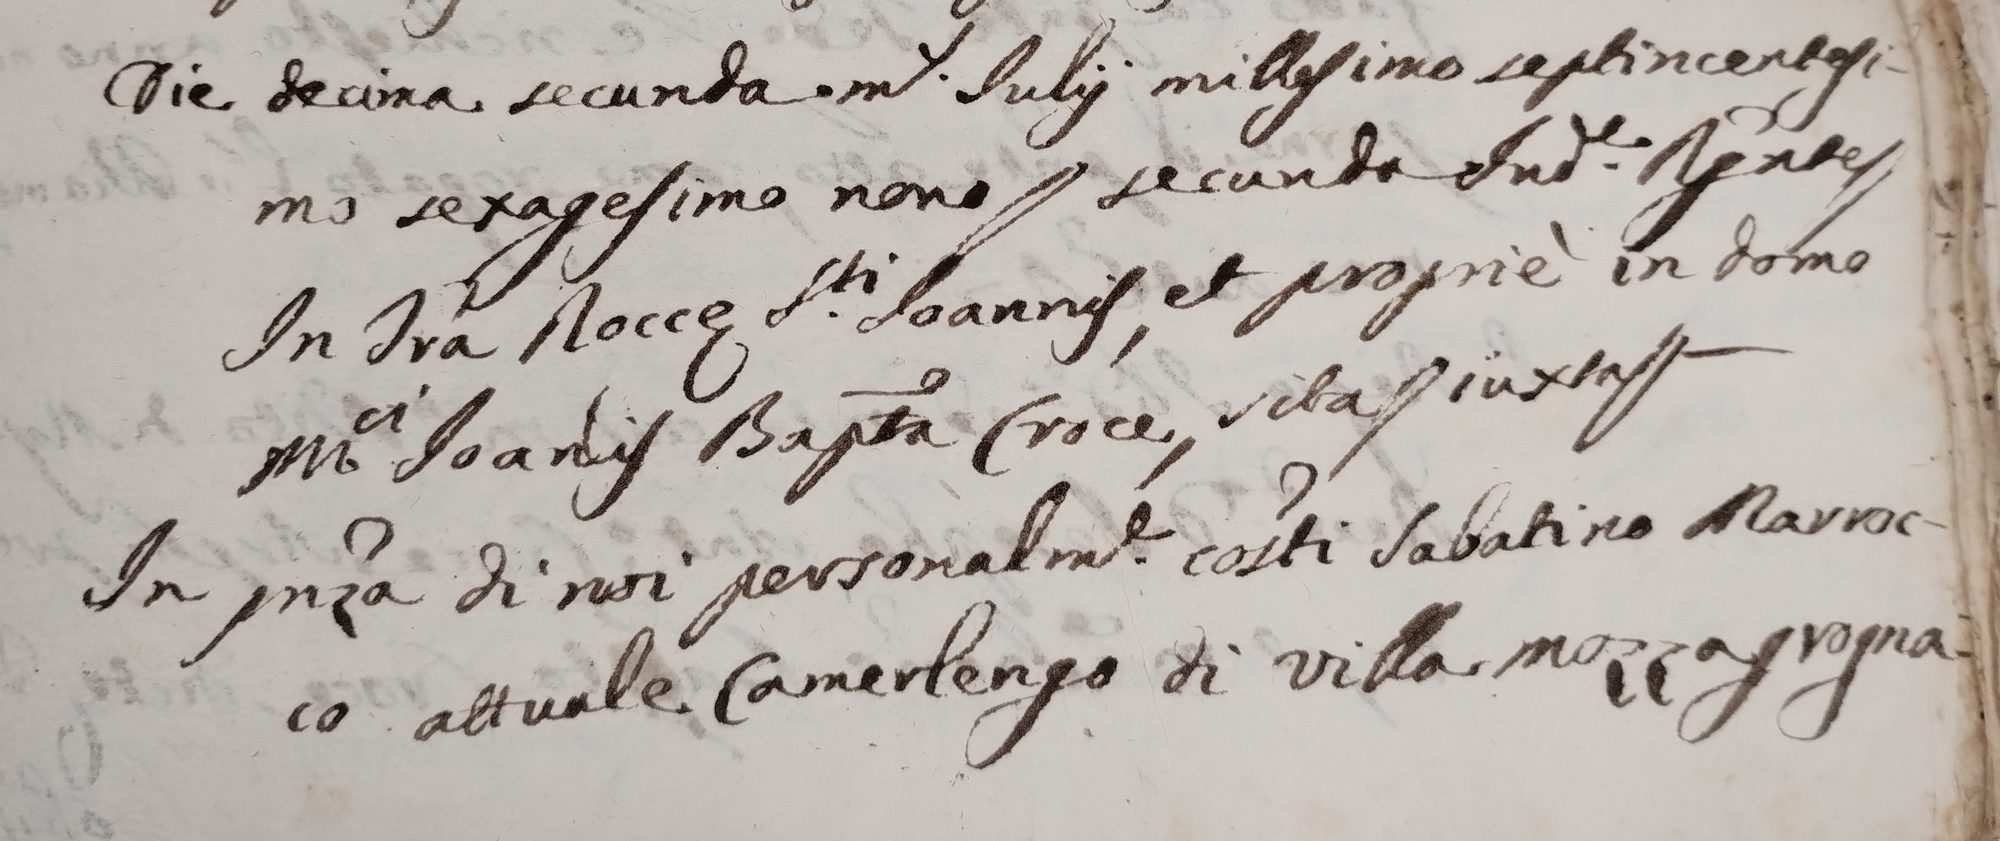 Die decima secunda m.s Julij millesimo septincentesi-
mo sexagesimo nono secunda Ind.e Regntes
In Tra Roccę S.ti Joannis, et propriè in domo
M.ci Joannis Bapta Croce, sita iuxta
In pnza di noi personalm.te costti Sabatino Marroc-
co attuale Camerlengo di Villa Mozzagrogna-